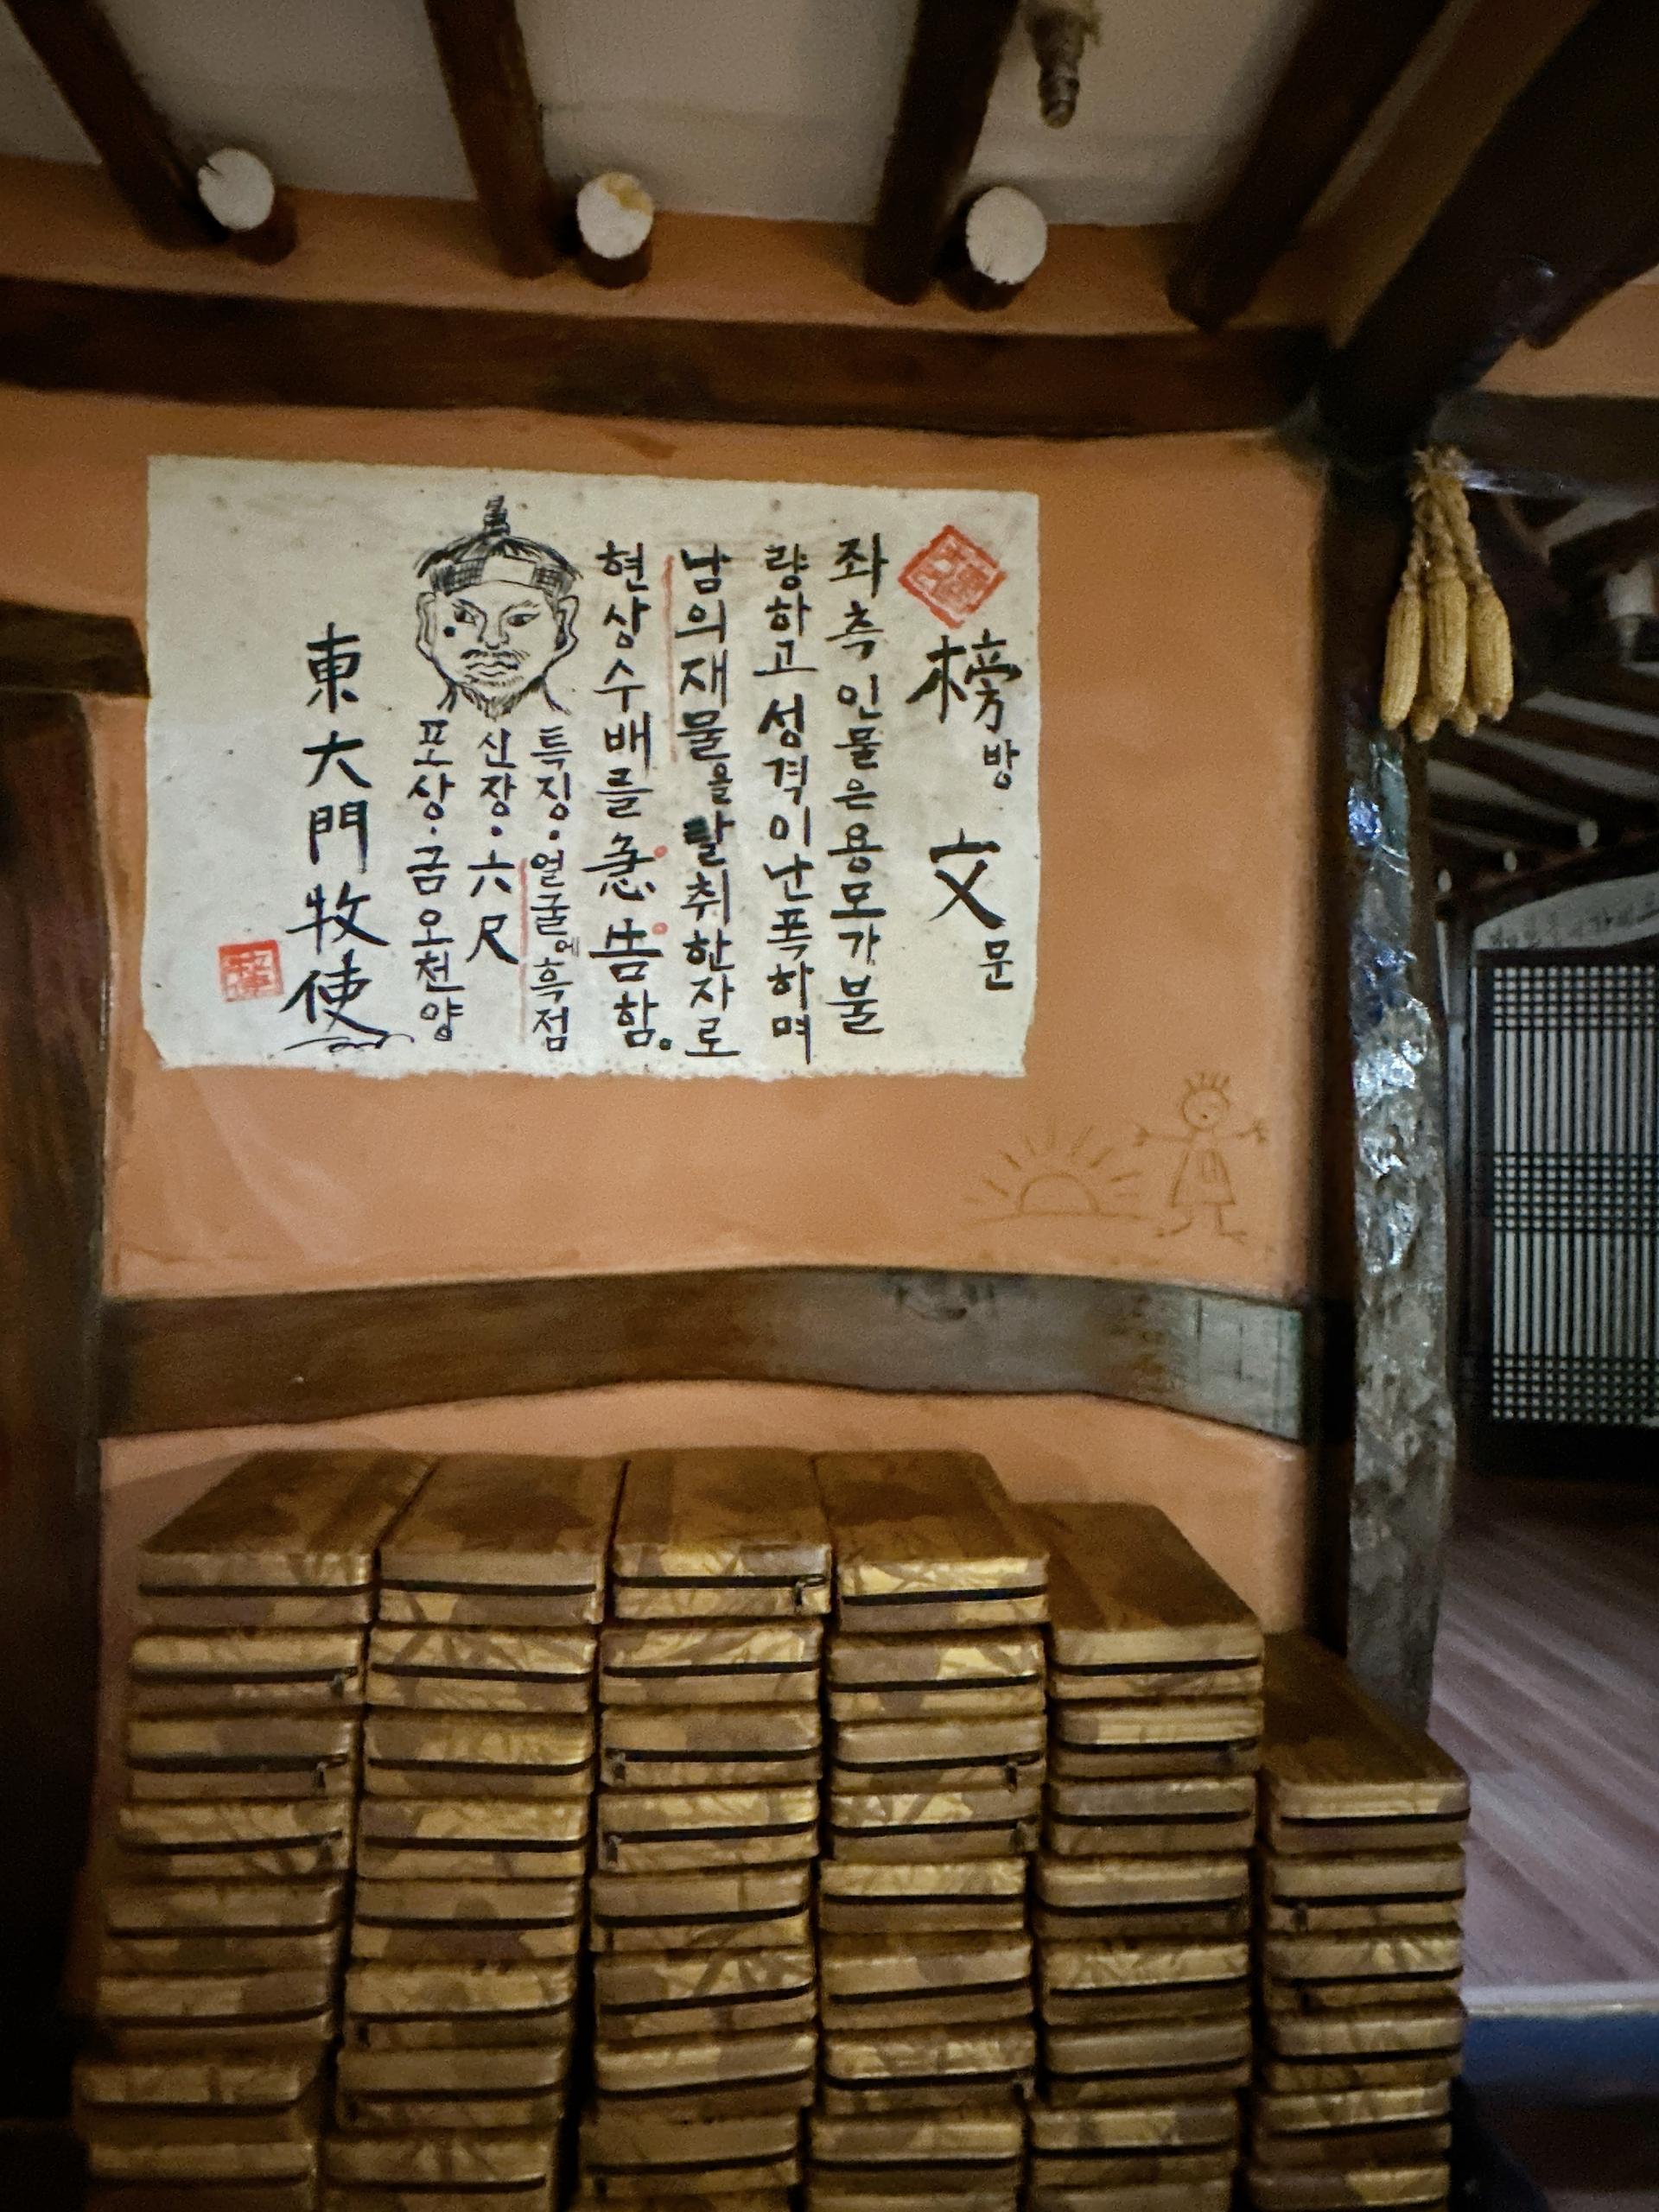 榜방 文문
좌측 인물은 용모가 불
량하고 성격이 난폭하며
남의 재물을 탈취한 자로
현상수배를 急告함.
특징·얼굴에 흑점
신장·六尺
포상·금오천양
東大門牧使